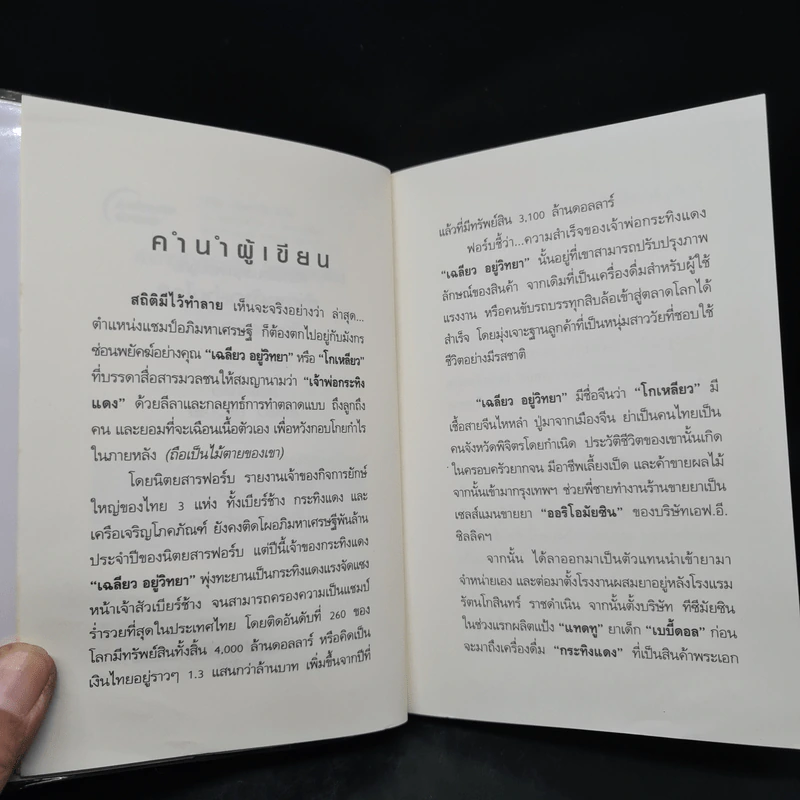 คำนำผู้เขียน
สถิติมีไว้ทำลาย เห็นจะจริงอย่างว่า ล่าสุด...
ตำแหน่งแชมป์อภิมหาเศรษฐี ก็ต้องตกไปอยู่กับมังกร
ซ่อนพยัคฆ์อย่างคุณ “เฉลียว อยู่วิทยา” หรือ “โกเหลียว”
ที่บรรดาสื่อสารมวลชนให้สมญานามว่า “เจ้าพ่อกระทิง
แดง” ด้วยลีลาและกลยุทธ์การทำตลาดแบบ ถึงลูกถึง
คน และยอมที่จะเฉือนเนื้อตัวเอง เพื่อหวังกอบโกยกำไร
ในภายหลัง (ถือเป็นไม้ตายของเขา)
โดยนิตยสารฟอร์บ รายงานเจ้าของกิจการยักษ์
ใหญ่ของไทย 3 แห่ง ทั้งเบียร์ช้าง กระทิงแดง และ
เครือเจริญโภคภัณฑ์ ยังคงติดโผอภิมหาเศรษฐีพันล้าน
ประจำปีของนิตยสารฟอร์บ แต่ปีนี้เจ้าของกระทิงแดง
“เฉลียว อยู่วิทยา” พุ่งทะยานเป็นกระทิงแดงแรงจัดแซง
หน้าเจ้าสัวเบียร์ช้าง จนสามารถครองความเป็นแชมป์
ร่ำรวยที่สุดในประเทศไทย โดยติดอันดับที่ 260 ของ
โลกมีทรัพย์สินทั้งสิ้น 4,000 ล้านดอลลาร์ หรือคิดเป็น
เงินไทยอยู่ราวๆ 1.3 แสนกว่าล้านบาท เพิ่มขึ้นจากปีที่
แล้วที่มีทรัพย์สิน 3,100 ล้านดอลลาร์
ฟอร์บชี้ว่า...ความสำเร็จของเจ้าพ่อกระทิงแดง
“เฉลียว อยู่วิทยา” นั้นอยู่ที่เขาสามารถปรับปรุงภาพ
ลักษณ์ของสินค้า จากเดิมที่เป็นเครื่องดื่มสำหรับผู้ใช้
แรงงาน หรือคนขับรถบรรทุกสิบล้อเข้าสู่ตลาดโลกได้
สำเร็จ โดยมุ่งเจาะฐานลูกค้าที่เป็นหนุ่มสาววัยที่ชอบใช้
ชีวิตอย่างมีรสชาติ
“เฉลียว อยู่วิทยา” มีชื่อจีนว่า “โกเหลียว” มี
เชื้อสายจีนไหหลำ ปู่มาจากเมืองจีน ย่าเป็นคนไทยเป็น
คนจังหวัดพิจิตรโดยกำเนิด ประวัติชีวิตของเขานั้นเกิด
ในครอบครัวยากจน มีอาชีพเลี้ยงเป็ด และค้าขายผลไม้
จากนั้นเข้ามากรุงเทพฯ ช่วยพี่ชายทำงานร้านขายยาเป็น
เซลส์แมนขายยา “ออริโอมัยซิน” ของบริษัทเอฟ.อี.
ซิลลิคฯ
จากนั้น ได้ลาออกมาเป็นตัวแทนนำเข้ายามา
จำหน่ายเอง และต่อมาตั้งโรงงานผสมยาอยู่หลังโรงแรม
รัตนโกสินทร์ ราชดำเนิน จากนั้นตั้งบริษัท ทีซีมัยซิน
ในช่วงแรกผลิตแป้ง “แทตทู” ยาเด็ก “เบบี้ดอล” ก่อน
จะมาถึงเครื่องดื่ม “กระทิงแดง” ที่เป็นสินค้าพระเอก